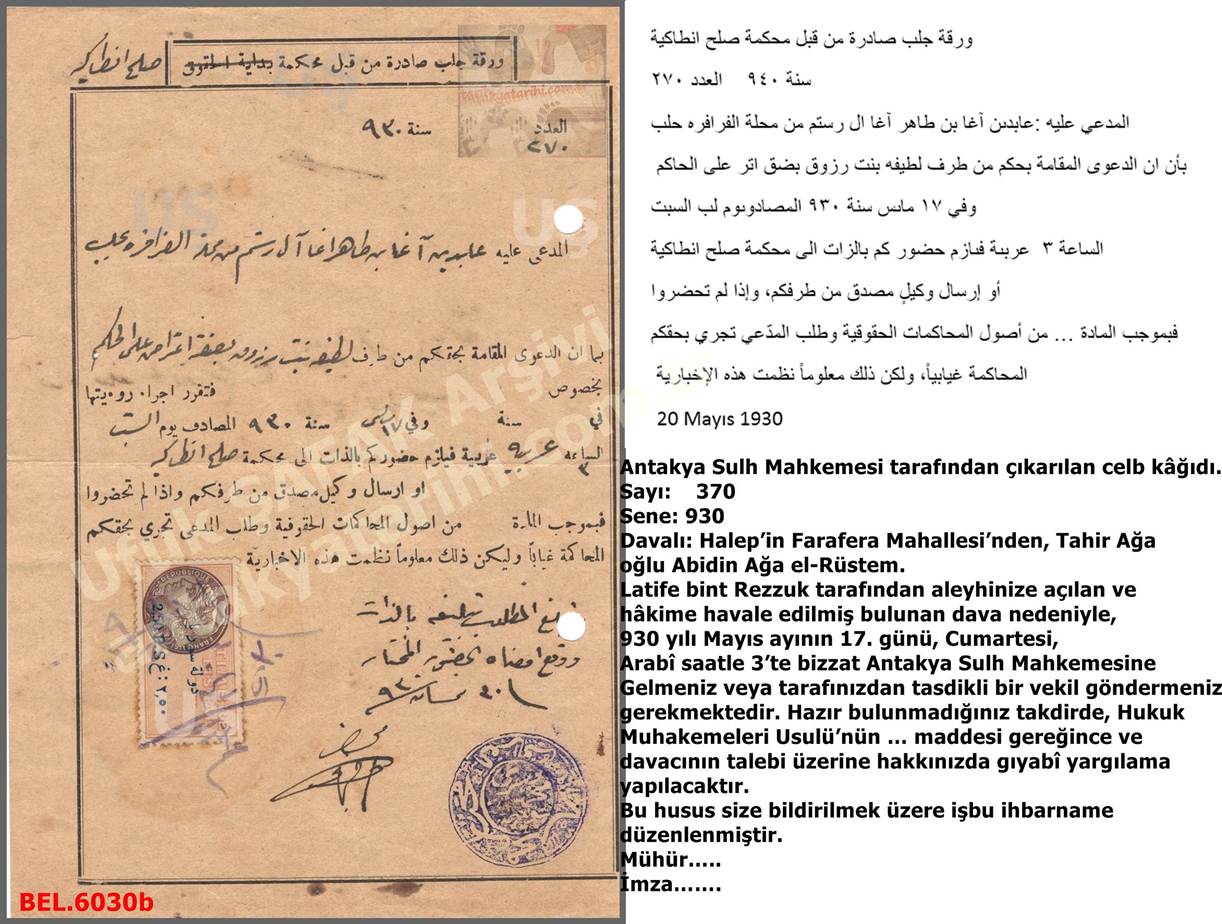 ورقة جلب صادرة من قبل محكمة بداية الحقوق صلح انطاكية
العدد سنة ٩٣٠
٢٧٠
المدعى عليه عابدين آغا بن طاهر اغا آل رستم من محلة الفرافره بحلب
بما ان الدعوى المقامة بحقكم من طرف لطيفه بنت رزوق بصفة اعتراض على الحكم
بخصوص فتقرر اجراء رؤيتها
في سنة وفي ١٧ مايس سنة ٩٣٠ المصادف يوم السبت
الساعه ٣ عربيه غربية فيلزم حضوركم بالذات الى محكمة صلح انطاكية
او ارسال وكيل مصدق من طرفكم واذا لم تحضروا
فبموجب المادة من اصول المحاكمات الحقوقية وطلب المدعى تجري بحقكم
المحاكمة غياباً وليكن ذلك معلوماً نظمت هذه الاخبارية
المطلوب تبليغه بالذات
ووقع امضاه بحضور المختار
محضر
BEL.6030b
Ufuk ŞAFAK Arşivi
antakyatarihi.com
ورقة جلب صادرة من قبل محكمة صلح انطاكية
سنة ٩٤٠ العدد ٢٧٠
المدعي عليه :عابدىن آغا بن طاهر آغا ال رستم من محلة الفرافره حلب
بأن ان الدعوى المقامة بحكم من طرف لطيفه بنت رزوق بضق اتر على الحاكم
وفي ١٧ ماىس سنة ٩٣٠ المصادوىوم لب السبت
الساعة ٣ عربىة فىازم حضور كم بالزات الى محكمة صلح انطاكية
أو إرسال وكيلٍ مصدق من طرفكم، وإذا لم تحضروا
فبموجب المادة ... من أصول المحاكمات الحقوقية وطلب المدّعي تجري بحقكم
المحاكمة غيابياً، ولكن ذلك معلوماً نظمت هذه الإخبارية
20 Mayıs 1930
Antakya Sulh Mahkemesi tarafından çıkarılan celb kâğıdı.
Sayı: 370
Sene: 930
Davalı: Halep’in Farafera Mahallesi’nden, Tahir Ağa
oğlu Abidin Ağa el-Rüstem.
Latife bint Rezzuk tarafından aleyhinize açılan ve
hâkime havale edilmiş bulunan dava nedeniyle,
930 yılı Mayıs ayının 17. günü, Cumartesi,
Arabî saatle 3’te bizzat Antakya Sulh Mahkemesine
Gelmeniz veya tarafınızdan tasdikli bir vekil göndermeniz
gerekmektedir. Hazır bulunmadığınız takdirde, Hukuk
Muhakemeleri Usulü’nün … maddesi gereğince ve
davacının talebi üzerine hakkınızda gıyabî yargılama
yapılacaktır.
Bu husus size bildirilmek üzere işbu ihbarname
düzenlenmiştir.
Mühür…..
İmza…….